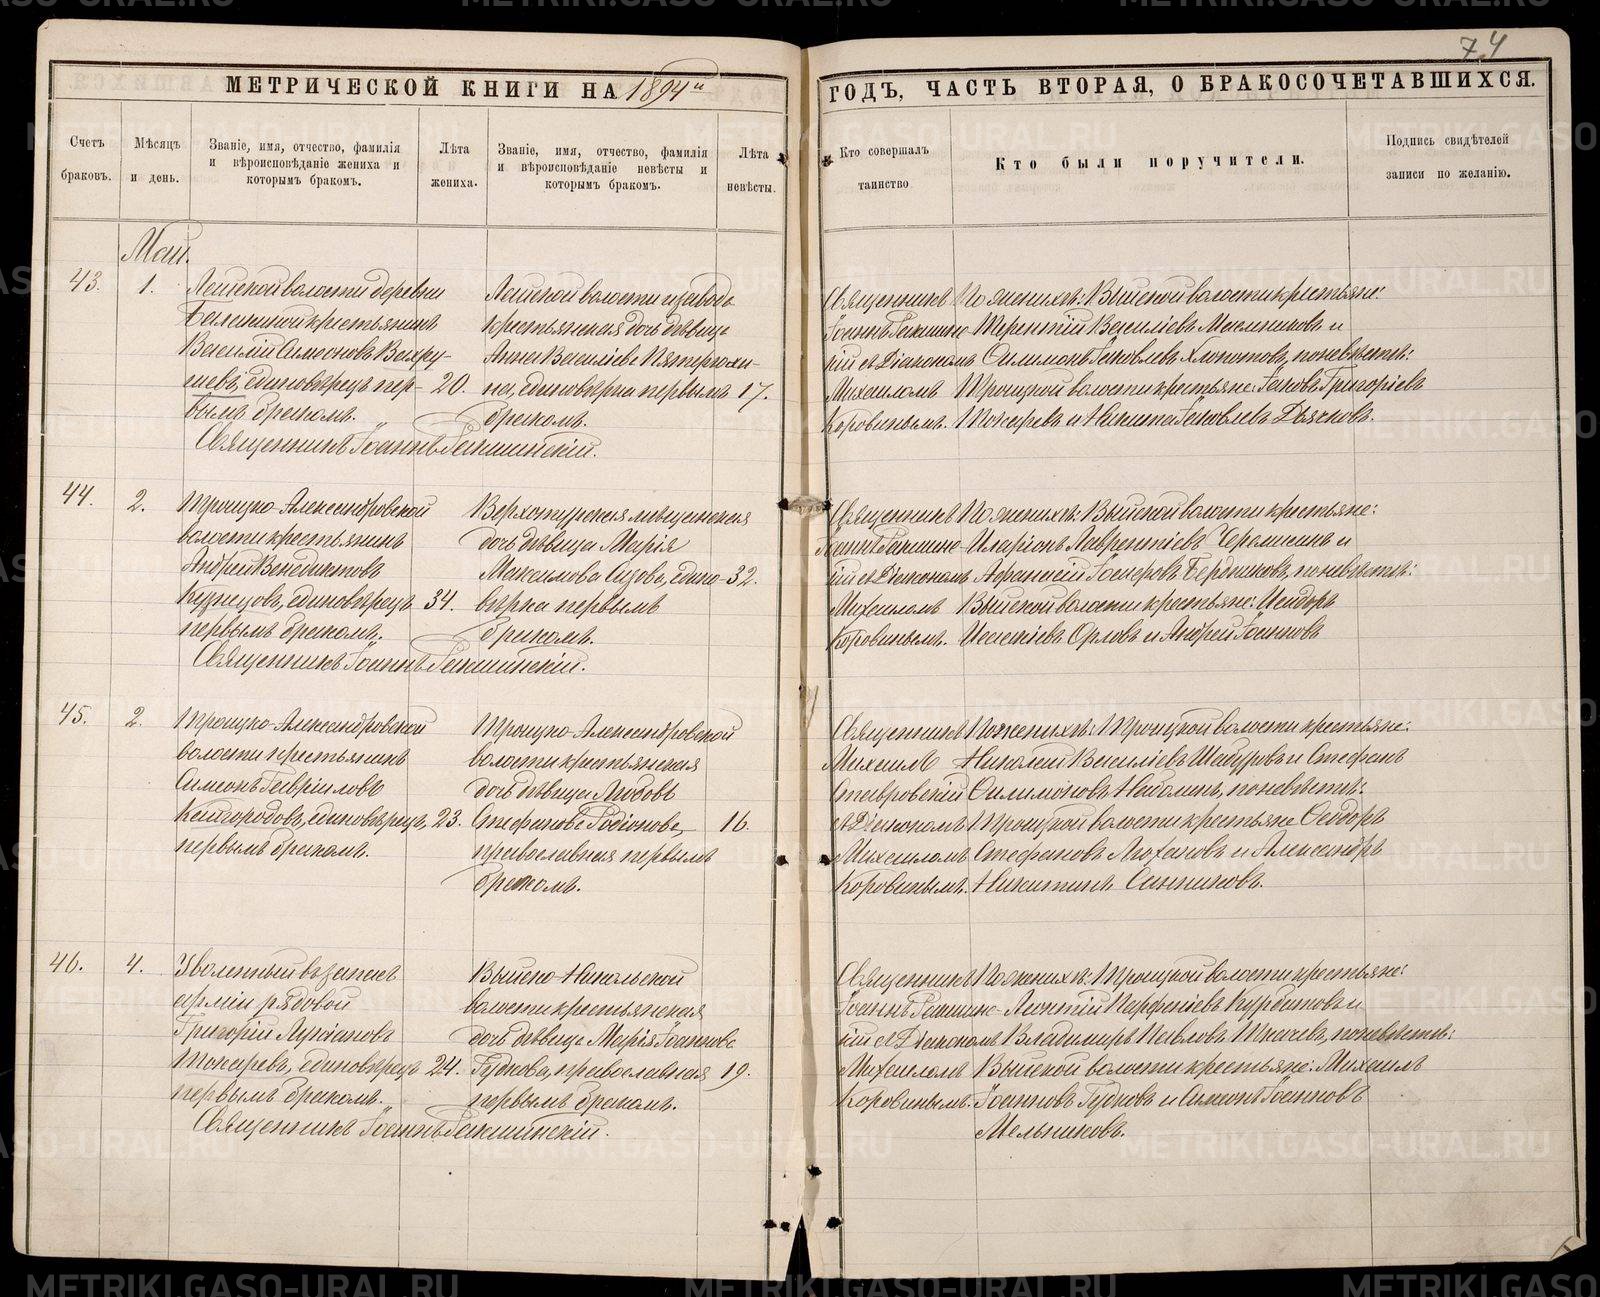 74
МЕТРИЧЕСКОЙ КНИГИ НА 1894й ГОДЪ, ЧАСТЬ ВТОРАЯ, О БРАКОСОЧЕТАВШИХСЯ.
Счетъ браковъ.
Мѣсяцъ и день.
Званіе, имя, отчество, фамилія
и вѣроисповѣданіе жениха и
которымъ бракомъ.
Лѣта жениха.
Званіе, имя, отчество, фамилія
и вѣроисповѣданіе невѣсты и
которымъ бракомъ.
Лѣта невѣсты.
Кто совершалъ
таинство
Кто были поручители.
Подпись свидѣтелей
записи по желанію.
Май.
43.
1.
волости деревни
крестьянинъ
Василій Симеоновъ Вахру-
шевъ, единовѣрецъ пер-
вымъ бракомъ.
20.
волости завода
крестьянская дочь дѣвица
Анна Васильева Пятерохи-
на, единовѣрка первымъ
бракомъ.
17.
Священникъ
Іоаннъ Гакшинс-
кій съ Діакономъ
Михаиломъ
Коровинымъ.
По женихѣ: Выйской волости крестьяне:
Терентій Васильевъ Масленниковъ и
Филимонъ Яковлевъ Хлопотовъ, по невѣстѣ:
Троицкой волости крестьяне: Іаковъ Григоріевъ
Токаревъ и Никита Яковлевъ Дьячковъ.
Священникъ Іоаннъ Гакшинскій.
44.
2.
Троицко-Александровской
волости крестьянинъ
Андрей Венедиктовъ
Кузнецовъ, единовѣрецъ
первымъ бракомъ.
34.
Верхотурская мѣщанская
дочь дѣвица Марія
Максимова Сизова, едино-
вѣрка первымъ
бракомъ.
32.
Священникъ
Іоаннъ Гакшинс-
кій съ Діакономъ
Михаиломъ
Коровинымъ.
По женихѣ: Выйской волости крестьяне:
Иларіонъ Лаврентіевъ и
Афанасій Бердниковъ, по невѣстѣ:
Выйской волости крестьяне: Исидоръ
Орловъ и Андрей Іоанновъ
Священникъ Іоаннъ Гакшинскій.
45.
2.
Троицко-Александровской
волости крестьянинъ
Симеонъ Гавріиловъ
Кайгородовъ, единовѣрецъ,
первымъ бракомъ.
23.
Троицко-Александровской
волости крестьянская
дочь дѣвица Любовь
Стефанова Родіонова,
православная первымъ
бракомъ.
16.
Священникъ
Михаилъ
Ставровскій
съ Діакономъ
Михаиломъ
Коровинымъ.
По женихѣ: Троицкой волости крестьяне:
Николай Васильевъ Шадуровъ и Стефанъ
Филимоновъ, по невѣстѣ:
Троицкой волости крестьяне Ѳеодоръ
Стефановъ и Александръ
Никитинъ Санниковъ.
46.
4.
Уволенный въ запасъ
арміи рядовой
Григорій Лукіановъ
Токаревъ, единовѣрецъ
первымъ бракомъ.
24.
Выйско-Никольской
волости крестьянская
дочь дѣвица Марія Іоаннова
Гудкова, православная
первымъ бракомъ.
19.
Священникъ
Іоаннъ Гакшинс-
кій съ Діакономъ
Михаиломъ
Коровинымъ.
По женихѣ: Троицкой волости крестьяне:
Леонтій Парфеніевъ Курбатовъ и
Владиміръ Павловъ Ткачевъ, по невѣстѣ:
Выйской волости крестьяне: Михаилъ
Іоанновъ Гудковъ и Симеонъ Іоанновъ
Мельниковъ.
Священникъ Іоаннъ Гакшинскій.
METRIKI.GASO-URAL.RU